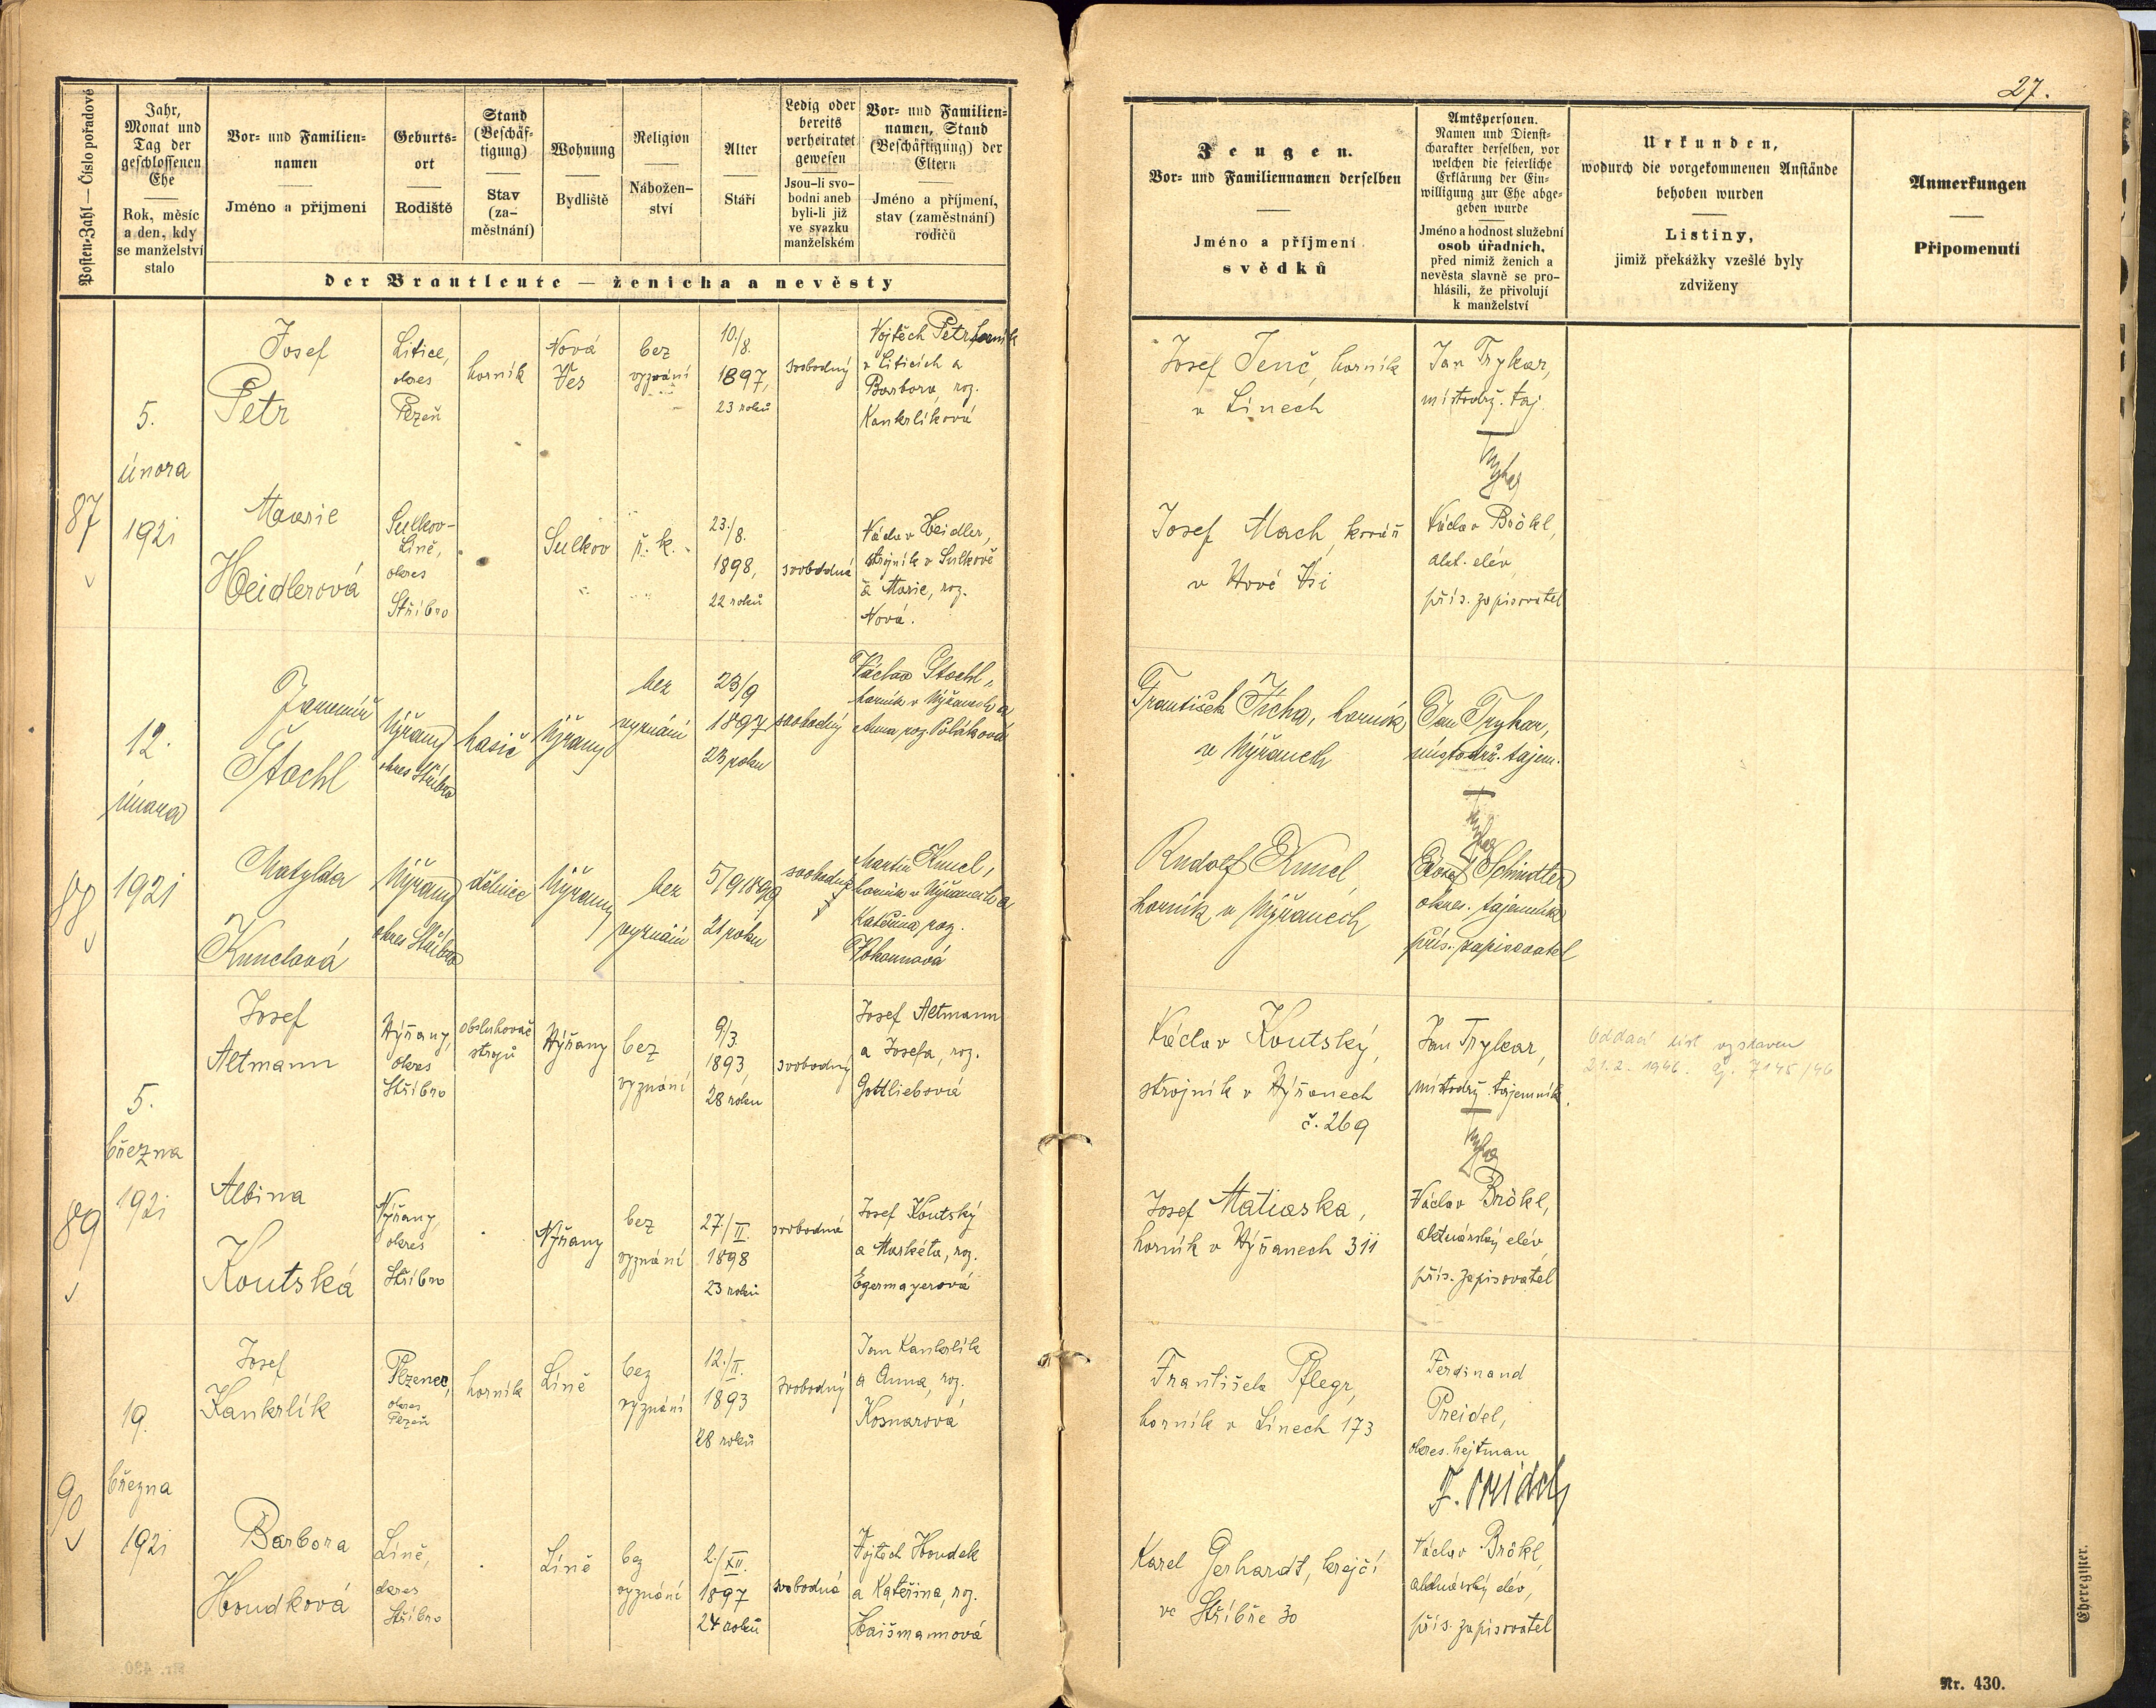 27.
Posten-Zahl — Číslo pořadové
Jahr,
Monat und
Tag der
geschlossenen
Ehe
Rok, měsíc
a den, kdy
se manželství
stalo
Vor- und Familien-
namen
Jméno a příjmení
Geburts-
ort
Rodiště
Stand
(Beschäf-
tigung)
Stav
(za-
městnání)
Wohnung
Bydliště
Religion
Nábožen-
ství
Alter
Stáří
Ledig oder
bereits
verheiratet
gewesen
Jsou-li svo-
bodni aneb
byli-li již
ve svazku
manželském
Vor- und Familien-
namen, Stand
(Beschäftigung) der
Eltern
Jméno a příjmení,
stav (zaměstnání)
rodičů
der Brautleute — ženicha a nevěsty
Zeugen.
Vor- und Familiennamen derselben
Jméno a příjmení
svědků
Amtspersonen.
Namen und Dienst-
charakter derselben, vor
welchen die feierliche
Erklärung der Ein-
willigung zur Ehe abge-
geben wurde
Jméno a hodnost služební
osob úřadních,
před nimiž ženich a
nevěsta slavně se pro-
hlásili, že přivolují
k manželství
Urkunden,
wodurch die vorgekommenen Anstände
behoben wurden
Listiny,
jimiž překážky vzešlé byly
zdviženy
Anmerkungen
Připomenutí
87
5.
února
1921
Josef
Petr
Litice,
okres
Plzeň
horník
Nová
Ves
bez
vyznání
10./8.
1897,
23 roků
svobodný
Vojtěch Petr, horník
v Liticích a
Barbora, roz.
Kankrlíková
Josef Jenč, horník
v Línech
Jan Trykar,
místodrž. taj.
Marie
Heidlerová
Sulkov-
Líně,
okres
Stříbro
Sulkov
ř. k.
23./8.
1898,
22 roků
svobodná
Václav Heidler,
strojník v Sulkově
a Marie, roz.
Nová.
Josef Mach, kovář
v Nové Vsi
Václav Brökl,
akt. elév
přís. zapisovatel
88
12.
února
1921
Jaromír
Štochl
Nýřany
okres Stříbro
hasič
Nýřany
bez
vyznání
23/9
1897
23 roků
svobodný
Václav Štochl,
horník v Nýřanech a
Anna roz. Poláková
František Tícha, horník
v Nýřanech
Jan Trykar,
místodrž. tajem.
Matylda
Kunclová
Nýřany
okres Stříbro
dělnice
Nýřany
bez
vyznání
5/9 1899
21 roků
svobodná
Martin Kuncl,
horník v Nýřanech a
Kateřina roz.
Rudolf Kuncl,
horník v Nýřanech
Schindler
okres. tajemník
přís. zapisovatel
89
5.
března
1921
Josef
Altmann
Nýřany,
okres
Stříbro
obsluhovač
strojů
Nýřany
bez
vyznání
9/3.
1893,
28 roků
svobodný
Josef Altmann
a Josefa, roz.
Gottliebová
Václav Koutský,
strojník v Nýřanech
č. 269
Jan Trykar,
místodrž. tajemník.
Oddací list vystaven
21.2. 1946. čj. 7145/46
Albina
Koutská
Nýřany,
okres
Stříbro
Nýřany
bez
vyznání
27./II.
1898
23 roků
svobodná
Josef Koutský
a Markéta, roz.
Egermayerová
Josef Matiaska,
horník v Nýřanech 311
Václav Brökl,
aktuárský elév
přís. zapisovatel
90
19.
března
1921
Josef
Kankrlík
Plzenec,
okres
Plzeň
horník
Líně
bez
vyznání
12./II.
1893
28 roků
svobodný
Jan Kankrlík
a Anna, roz.
Kosnarová
František Pflegr,
horník v Línech 173
Ferdinand
Preidel,
okres. hejtman
F. Preidel
Barbora
Houdková
Líně,
okres
Stříbro
Líně
bez
vyznání
2./XII.
1897
24 roků
svobodná
Vojtěch Houdek
a Kateřina, roz.
Haišmannová
Karel Gerhardt, krejčí
ve Stříbře 30
Václav Brökl,
aktuárský elév,
přís. zapisovatel
Eheregister.
Nr. 430.